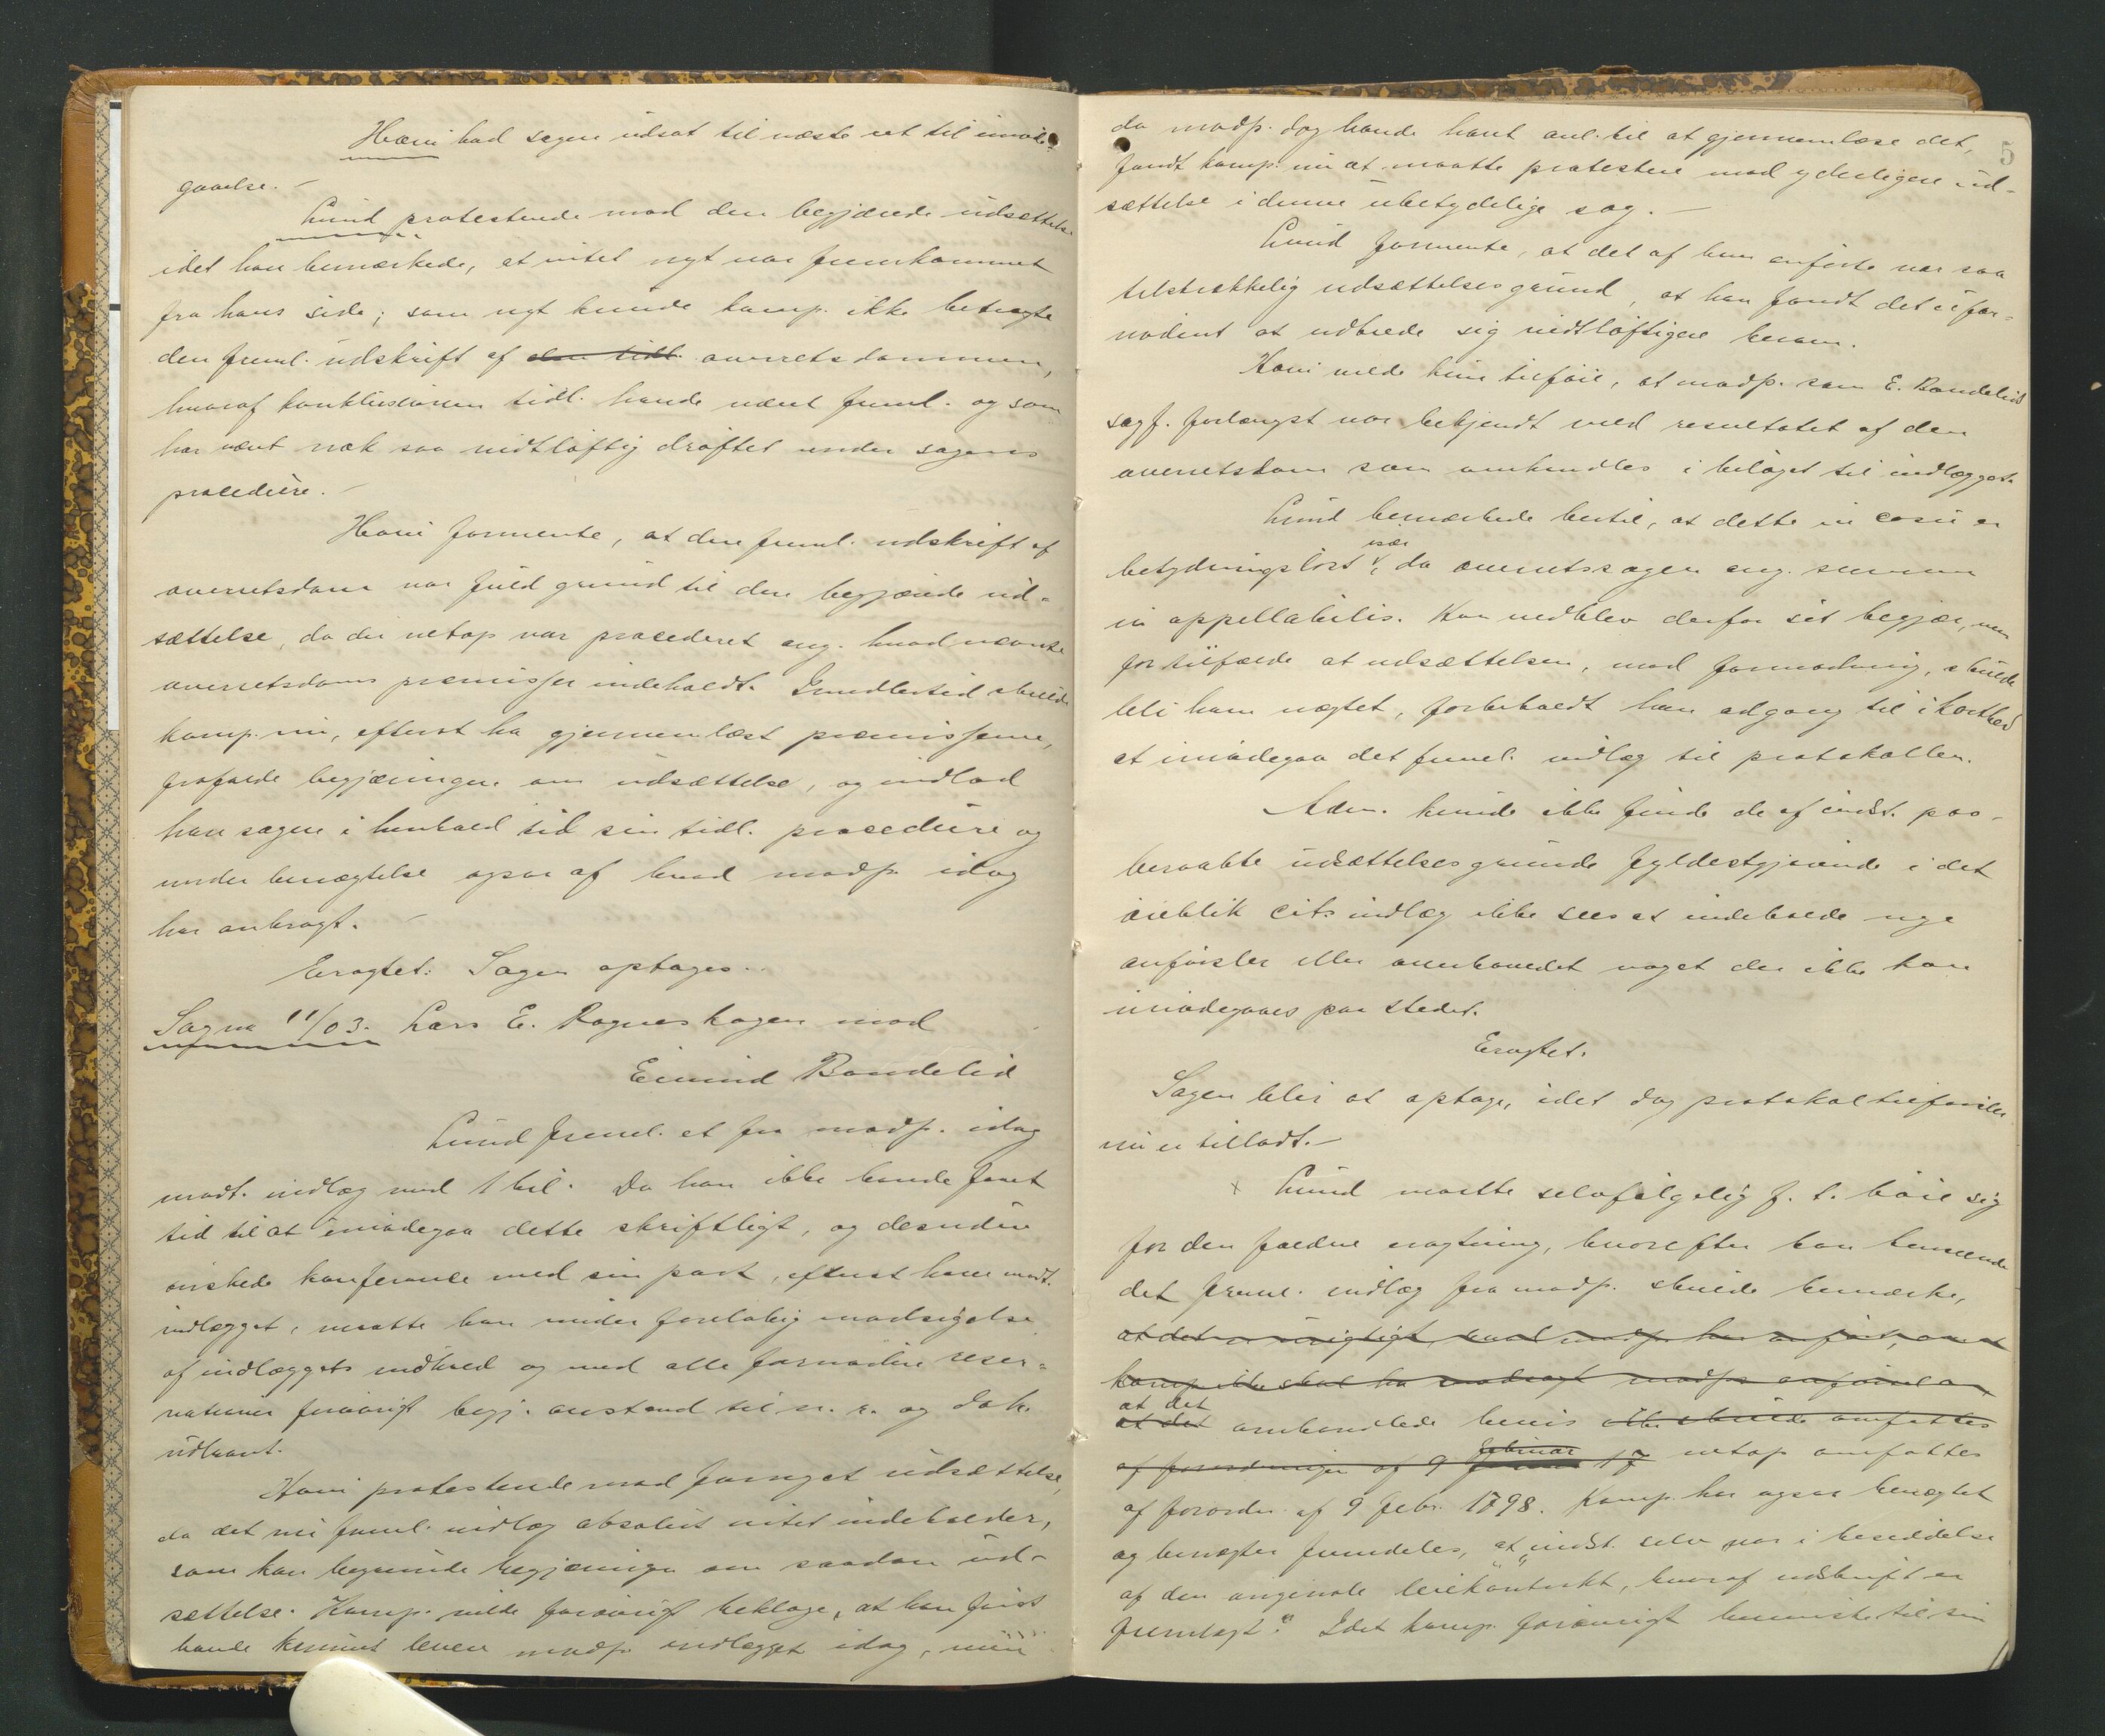 Hæni bad sagen udsat til næste ret til imøde-
gaaelse. -
Lund protesterede mod den begjærede udsættelse
idet han bemærkede, at intet nyt var fremkommet
fra hans side; som nyt kunde komp. ikke betragte
den freml. udskrift af den tidl. overretsdommen,
hvoraf konklusionen tidl. havde været freml. og som
har været nok saa vidtløftig drøftet under sagens
procedüre. -
Hæni formente, at den freml. udskrift af
overretsdom var fuld grund til den begjærede ud-
sættelse, da der netop var procederet ang. hvad nævnte
overretsdoms præmisser indeholdt. Imidlertid skulde
komp. nu, efterat ha gjennemlæst præmisserne,
frafalde begjæringen om udsættelse, og indlod
han sagen i henhold til sin tidl. procedüre og
under benægtelse ogsaa af hvad modp. idag
har anbragt. -
Eragtet: Sagen optages.
Sag no 11/03. Lars E. Rogneskogen mod
Eivind Bondelid
Lund freml. et fra modp. idag
modt. indlæg med 1 bil. Da han ikke havde faaet
tid til at imødegaa dette skriftligt, og desuden
ønskede konferance med sin part, efterat have modt.
indlægget, maatte han under foreløbig modsigelse
af indlæggets indhold og med alle fornødne reser-
vationer forøvrigt begj. anstand til n. r. og dok.
udlaant.
Hæni protesterede mod forlanget udsættelse,
da det nu freml. indlæg absolut intet indeholder,
som kan begrunde begjæringen om saadan ud-
sættelse. Komp. vilde forøvrigt beklage, at han først
havde kunnet levere modp. indlægget idag, men
5
da modp. dog havde havt anl. til at gjennemlæse det,
fandt komp. nu at maatte protestere mod yderligere ud-
sættelse i denne ubetydelige sag. -
Lund formente, at det af ham anførte var saa
tilstrækkelig udsættelsesgrund, at han fandt det ufor-
nødent at udbrede sig vidtløftigere herom.
Hæni vilde kun tilføie, at modp. som E. Bondelids
sagf. forlængst var bekjendt med resultatet af den
overretsdom som omhandles i bilaget til indlægget.
Lund bemærkede hertil, at dette in casu er
især
betydningsløst, da overretssagen ang. summen
in appellabilis. Han vedblev derfor sit begjær, men
for tilfælde at udsættelsen, mod formodning, skulde
bli ham nægtet, forbeholdt han adgang til i korthed
at imødegaa det freml. indlæg til protokollen.
Adm. kunde ikke finde de af indst. paa-
beraabte udsættelsesgrunde fyldestgjørende i det
øieblik cits indlæg ikke sees at indeholde nye
anførsler eller overhovedet noget der ikke kan
imødegaaes paa stedet.
Eragtet.
Sagen blir at optage, idet dog protokoltilførsler
nu er tilladt. -
x Lund maatte selvfølgelig f. t. bøie sig
for den faldne eragtning, hvorefter han henseende
det freml. indlæg fra modp. skulde bemærke,
at det er urigtigt, hvad modp. har anført, om at
komp. ikke skal ha modsagt modps anførsel om,
at det
at det omhandlede bevis ikke skulde omfattes
februar
af forordningen af 9 17 netop omfattes
af forordn. af 9 febr. 1798. Komp. har ogsaa benægtet
og benægter fremdeles, at "indst. selv var i besiddelse
af den originale leiekontrakt, hvoraf udskrift er
fremlagt." Idet komp. forøvrigt henviste til sin